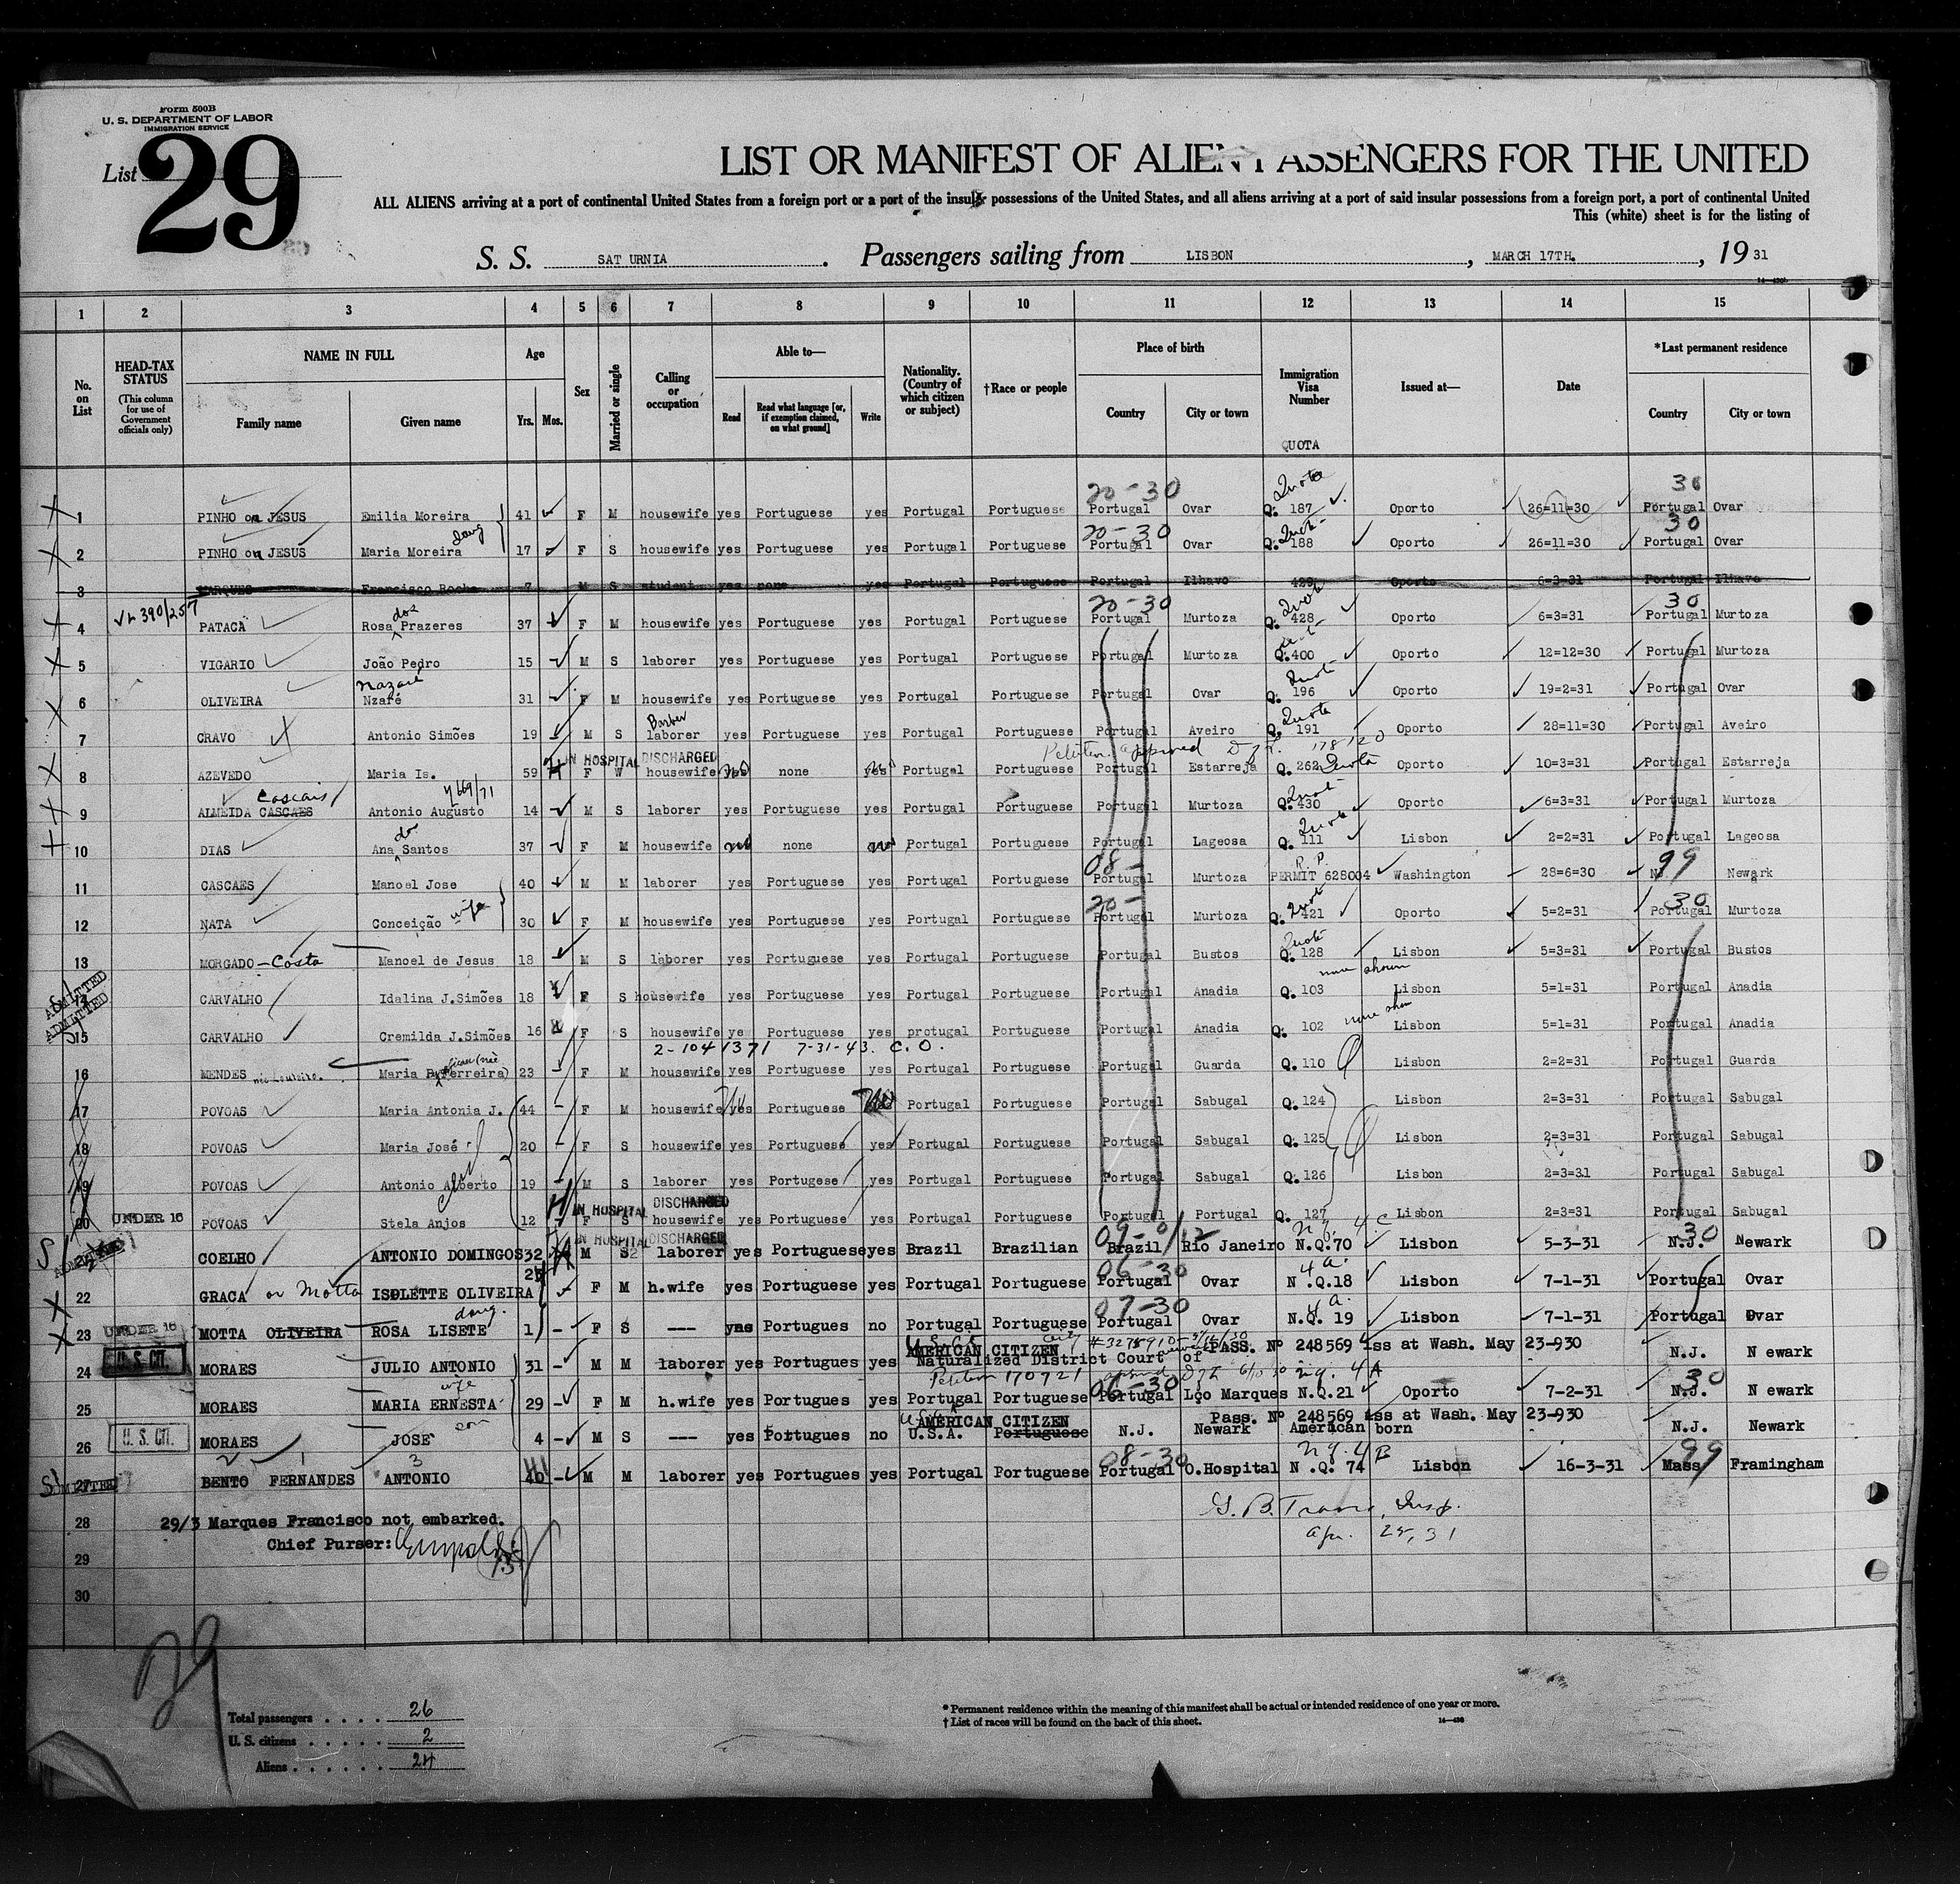 Form 500B
U. S. DEPARTMENT OF LABOR
IMMIGRATION SERVICE
List 29
LIST OR MANIFEST OF ALIEN PASSENGERS FOR THE UNITED
ALL ALIENS arriving at a port of continental United States from a foreign port or a port of the insular possessions of the United States, and all aliens arriving at a port of said insular possessions from a foreign port, a port of continental United
This (white) sheet is for the listing of
S. S. SAT URNIA. Passengers sailing from LISBON, MARCH 17TH., 19 31
1 2 3 4 5 6 7 8 9 10 11 12 13 14 15
No. on List
HEAD-TAX STATUS (This column for use of Government officials only)
NAME IN FULL Family name Given name
Age Yrs. Mos.
Sex
Married or single
Calling or occupation
Able to— Read Read what language [or, if exemption claimed, on what ground] Write
Nationality. (Country of which citizen or subject)
†Race or people
Place of birth Country City or town
Immigration Visa Number QUOTA
Issued at—
Date
*Last permanent residence Country City or town
20-30 Quota 30
1 PINHO ou JESUS Emilia Moreira 41 F M housewife yes Portuguese yes Portugal Portuguese Portugal Ovar Q. 187 Oporto 26=11=30 Portugal Ovar
daug 20-30 Quota 30
2 PINHO ou JESUS Maria Moreira 17 F S housewife yes Portuguese yes Portugal Portuguese Portugal Ovar Q. 188 Oporto 26=11=30 Portugal Ovar
3 MARQUES Francisco Rocha 7 M S student yes none yes Portugal Portuguese Portugal Ilhavo 429 Oporto 6=3-31 Portugal Ilhavo
390/257 dos 20-30 Quota 30
4 PATACA Rosa Prazeres 37 F M housewife yes Portuguese yes Portugal Portuguese Portugal Murtoza Q. 428 Oporto 6=3=31 Portugal Murtoza
5 VIGARIO João Pedro 15 M S laborer yes Portuguese yes Portugal Portuguese Portugal Murtoza Q.400 Oporto 12=12=30 Portugal Murtoza
Nazaré Quota
6 OLIVEIRA Nzaré 31 F M housewife yes Portuguese yes Portugal Portuguese Portugal Ovar Q. 196 Oporto 19=2=31 Portugal Ovar
Barber Quota
7 CRAVO Antonio Simões 19 M S laborer yes Portuguese yes Portugal Portuguese Portugal Aveiro Q. 191 Oporto 28=11=30 Portugal Aveiro
IN HOSPITAL DISCHARGED Petition approved 178120
8 AZEVEDO Maria Is. 59 F W housewife yes no none yes Portugal Portuguese Portugal Estarreja Q. 262 Quota Oporto 10=3=31 Portugal Estarreja
Cascais Quota
9 ALMEIDA CASCAES Antonio Augusto 14 M S laborer yes Portuguese yes Portugal Portuguese Portugal Murtoza Q.430 Oporto 6=3=31 Portugal Murtoza
dos Quota
10 DIAS Ana Santos 37 F M housewife no none no Portugal Portuguese Portugal Lageosa Q. 111 Lisbon 2=2=31 Portugal Lageosa
08- R.P. 99
11 CASCAES Manoel Jose 40 M M laborer yes Portuguese yes Portugal Portuguese Portugal Murtoza PERMIT 628004 Washington 28=6=30 N. Newark
20- 30
12 NATA Conceição wife 30 F M housewife yes Portuguese yes Portugal Portuguese Portugal Murtoza Q. 421 Oporto 5=2=31 Portugal Murtoza
Quota
13 MORGADO-Costa Manoel de Jesus 18 M S laborer yes Portuguese yes Portugal Portuguese Portugal Bustos Q. 128 Lisbon 5=3=31 Portugal Bustos
ADMITTED none shown
14 CARVALHO Idalina J.Simões 18 F S housewife yes Portuguese yes Portugal Portuguese Portugal Anadia Q. 103 Lisbon 5=1=31 Portugal Anadia
ADMITTED
15 CARVALHO Cremilda J.Simões 16 F S housewife ye Portuguese yes protugal Portuguese Portugal Anadia Q. 102 Lisbon 5=1=31 Portugal Anadia
2-1041371 7-31-43. C.O.
16 MENDES Maria P. Ferreira) 23 F M housewife yes Portuguese yes Portugal Portuguese Portugal Guarda Q. 110 Lisbon 2=2=31 Portugal Guarda
17 POVOAS Maria Antonia J. 44 F M housewife yes No Portuguese No Portugal Portuguese Portugal Sabugal Q. 124 Lisbon 2=3=31 Portugal Sabugal
18 POVOAS Maria José 20 F S housewife yes Portuguese yes Portugal Portuguese Portugal Sabugal Q. 125 Lisbon 2=3=31 Portugal Sabugal
19 POVOAS Antonio Alberto 19 M S laborer yes Portugese yes Portugal Portuguese Portugal Sabugal Q. 126 Lisbon 2=3=31 Portugal Sabugal
IN HOSPITAL DISCHARGED
20 UNDER 16 POVOAS Stela Anjos 12 F S housewife yes Portuguese yes Portugal Portuguese Portugal Portugal Q. 127 Lisbon 2=3=31 Portugal Sabugal
IN HOSPITAL DISCHARGED 30
21 COELHO ANTONIO DOMINGOS 32 M S laborer yes Portuguese yes Brazil Brazilian Brazil Rio Janeiro N.Q.70 Lisbon 5-3-31 N.J. Newark
06-30
22 GRACA or Motta ISOLETTE OLIVEIRA F M h.wife yes Portuguese yes Portugal Portuguese Portugal Ovar N .Q.18 Lisbon 7-1-31 Portugal Ovar
daug. 07-30
23 UNDER 16 MOTTA OLIVEIRA ROSA LISETE 1 F S --- yes Portugues no Portugal Portuguese Portugal Ovar N.Q. 19 Lisbon 7-1-31 Portugal Ovar
24 U. S. CIT. MORAES JULIO ANTONIO 31 M M laborer yes Portugues yes AMERICAN CITIZEN Naturalized District Court of PASS. Nº 248569 iss at Wash. May 23-930 N.J. N ewark
wife Petition 170721 06-30 30
25 MORAES MARIA ERNESTA 29 F M h.wife yes Portugues yes Portugal Portuguese Portugal Lço Marques N.Q.21 Oporto 7-2-31 N.J. N ewark
son AMERICAN CITIZEN Pass. Nº 248569 iss at Wash. May 23-930
26 U. S. CIT. MORAES JOSE 4 M S --- yes Portugues no U.S.A. Portuguese N.J. Newark American born N.J. Newark
08-30 99
27 ADMITTED BENTO FERNANDES ANTONIO 40 41 M M laborer yes Portugues yes Portugal Portuguese Portugal O.Hospital N .Q. 74 Lisbon 16-3-31 Mass Framingham
28 29/3 Marques Francisco not embarked.
Chief Purser:
Insp.
Apr. 25, 31
29
30
29
Total passengers . . . . 26
U. S. citizens . . . . . 2
Aliens . . . . . . 24
* Permanent residence within the meaning of this manifest shall be actual or intended residence of one year or more.
† List of races will be found on the back of this sheet.